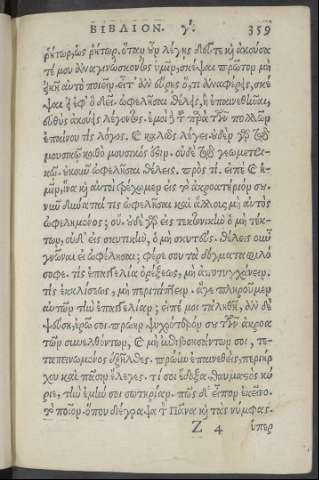 ΒΙΒΛΙΟΝ. γʹ. 359
ῥήτωρ, ὡς ῥήτωρ. ὅταν οὖν λέγῃς δεῦτε καὶ ἀκούσα
τέ μου ἀναγινωσκοντος ὑμῖν, σκέψαι πρῶτον μὴ
εἰκῆ αὐτὸ ποιεῖν. εἶτ' ἂν εὕρῃς ὅ, τι ἀναφέρῃς, σκέ
ψαι εἰ ἐφ' ὃ δεῖ. ὠφελῆσαι θέλῃς, ἢ ἐπαινεθῆναι,
εὐθὺς ἀκούῃς λέγοντος. ἐμοὶ δὲ τοῦ παρὰ τῶν πολλῶν
ἐπαίνου τίς λόγος. καὶ καλῶς λέγει. οὐδὲν γὰρ τῷ
μουσικῷ καθὸ μουσικός ἐστιν. οὐδὲ τῷ γεωμετρι-
κῷ. οὐκοῦν ὠφελῆσαι θέλεις. πρὸς τί. εἰπὲ καὶ ἡ-
μῖν, ἵνα καὶ αὐτοὶ τρέχομεν εἰς τὸ ἀκροατήριόν σου.
νῦν δύναταί τις ὠφελῆσαι καὶ ἄλλους μὴ αὐτὸς
ὠφελημένος; οὔ. οὐδὲ γὰρ εἰς τεκτονικὴν ὁ μὴ τέκ-
των, οὐδ' εἰς σκυτικὴν, ὁ μὴ σκυτεύς. θέλεις οὖν
γνῶναι εἰ ὠφέλησαι; φέρε σου τὰ δόγματα φιλό
σοφε. τίς ἐπαγγελία ὀρέξεως, μὴ ἀποτυγχάνειν.
τίς ἐκκλίσεως, μὴ περιπίπτειν. ἄγε πληροῦμεν
αὐτῶν τὴν ἐπαγγελίαν; εἰπέ μοι τἀληθῆ, ἂν δὲ
ψεύσῃ, ἐρῶ σοι. πρώην ψυχρότερόν σου τῶν ἀκροα
τῶν συνελθόντων, καὶ μὴ ἐπιβοησάντων σοι, τε-
ταπεινωμένος ἐξῆλθες. πρώην ἐπαινεθεὶς, περιήρ
χου καὶ πᾶσιν ἔλεγες. τί σοι ἔδοξα. θαυμαστῶς κύ
ριε, τὴν ἐμήν σοι σωτηρίαν. πῶς δὲ εἶπον ἐκεῖνο.
τὸ ποῖον. ὅπου διέγραψα τὸν Πᾶνα καὶ τὰς νύμφας.
Z 4 ὑπερ